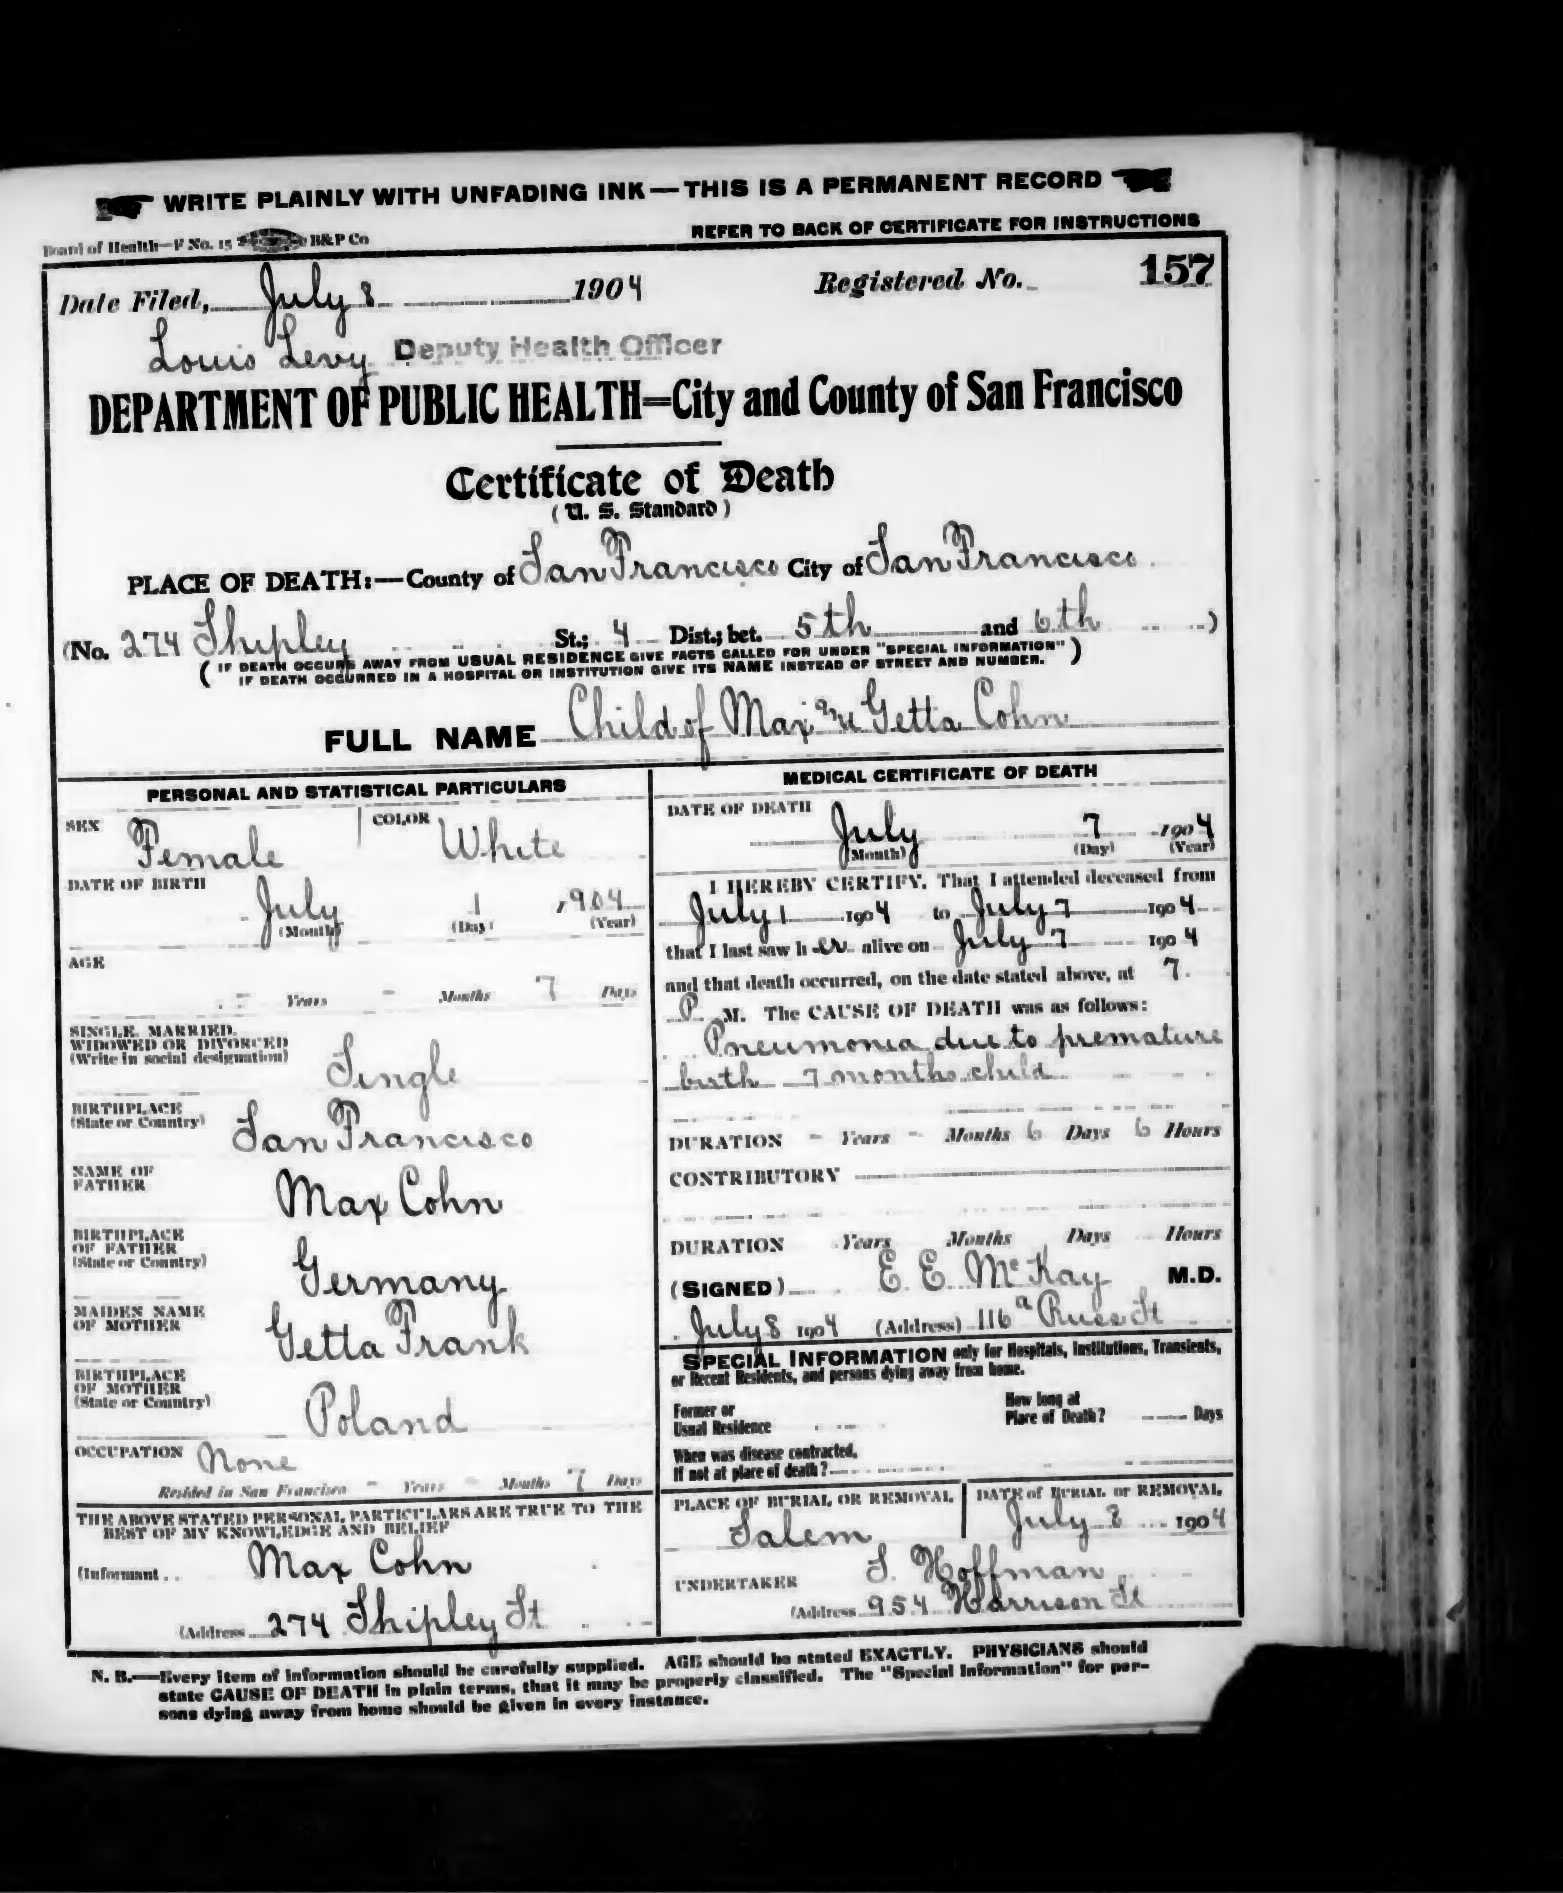 WRITE PLAINLY WITH UNFADING INK—THIS IS A PERMANENT RECORD
Board of Health—F No. 15 B&P Co
REFER TO BACK OF CERTIFICATE FOR INSTRUCTIONS
Date Filed, July 8 1904 Registered No. 157
Louis Levy Deputy Health Officer
DEPARTMENT OF PUBLIC HEALTH=City and County of San Francisco
Certificate of Death
(U. S. Standard)
PLACE OF DEATH:—County of San Francisco City of San Francisco
(No. 274 Shipley St.; 4 Dist.; bet. 5th and 6th)
(IF DEATH OCCURS AWAY FROM USUAL RESIDENCE GIVE FACTS CALLED FOR UNDER "SPECIAL INFORMATION"
IF DEATH OCCURRED IN A HOSPITAL OR INSTITUTION GIVE ITS NAME INSTEAD OF STREET AND NUMBER.)
FULL NAME Child of Max and Getta Cohn
PERSONAL AND STATISTICAL PARTICULARS
SEX Female COLOR White
DATE OF BIRTH
July 1 , 904
(Month) (Day) (Year)
AGE
- Years - Months 7 Days
SINGLE, MARRIED,
WIDOWED OR DIVORCED
(Write in social designation) Single
BIRTHPLACE
(State or Country) San Francisco
NAME OF
FATHER Max Cohn
BIRTHPLACE
OF FATHER
(State or Country) Germany
MAIDEN NAME
OF MOTHER Getta Frank
BIRTHPLACE
OF MOTHER
(State or Country) Poland
OCCUPATION None
Resided in San Francisco - Years - Months 7 Days
THE ABOVE STATED PERSONAL PARTICULARS ARE TRUE TO THE
BEST OF MY KNOWLEDGE AND BELIEF
(Informant Max Cohn
(Address 274 Shipley St
MEDICAL CERTIFICATE OF DEATH
DATE OF DEATH
July 7 1904
(Month) (Day) (Year)
I HEREBY CERTIFY, That I attended deceased from
July 1 1904 to July 7 1904
that I last saw h er alive on July 7 1904
and that death occurred, on the date stated above, at 7
P M. The CAUSE OF DEATH was as follows:
Pneumonia due to premature
birth 7 months child
DURATION - Years - Months 6 Days 6 Hours
CONTRIBUTORY
DURATION Years Months Days Hours
(SIGNED) E E McKay M.D.
July 8 1904 (Address) 116a Russ St
SPECIAL INFORMATION only for Hospitals, Institutions, Transients,
or Recent Residents, and persons dying away from home.
Former or
Usual Residence
How long at
Place of Death? Days
When was disease contracted,
If not at place of death?
PLACE OF BURIAL OR REMOVAL
Salem
DATE of BURIAL or REMOVAL
July 8 1904
UNDERTAKER S. Hoffman
(Address 954 Harrison St
N. B.—Every item of information should be carefully supplied. AGE should be stated EXACTLY. PHYSICIANS should
state CAUSE OF DEATH in plain terms, that it may be properly classified. The "Special Information" for per-
sons dying away from home should be given in every instance.